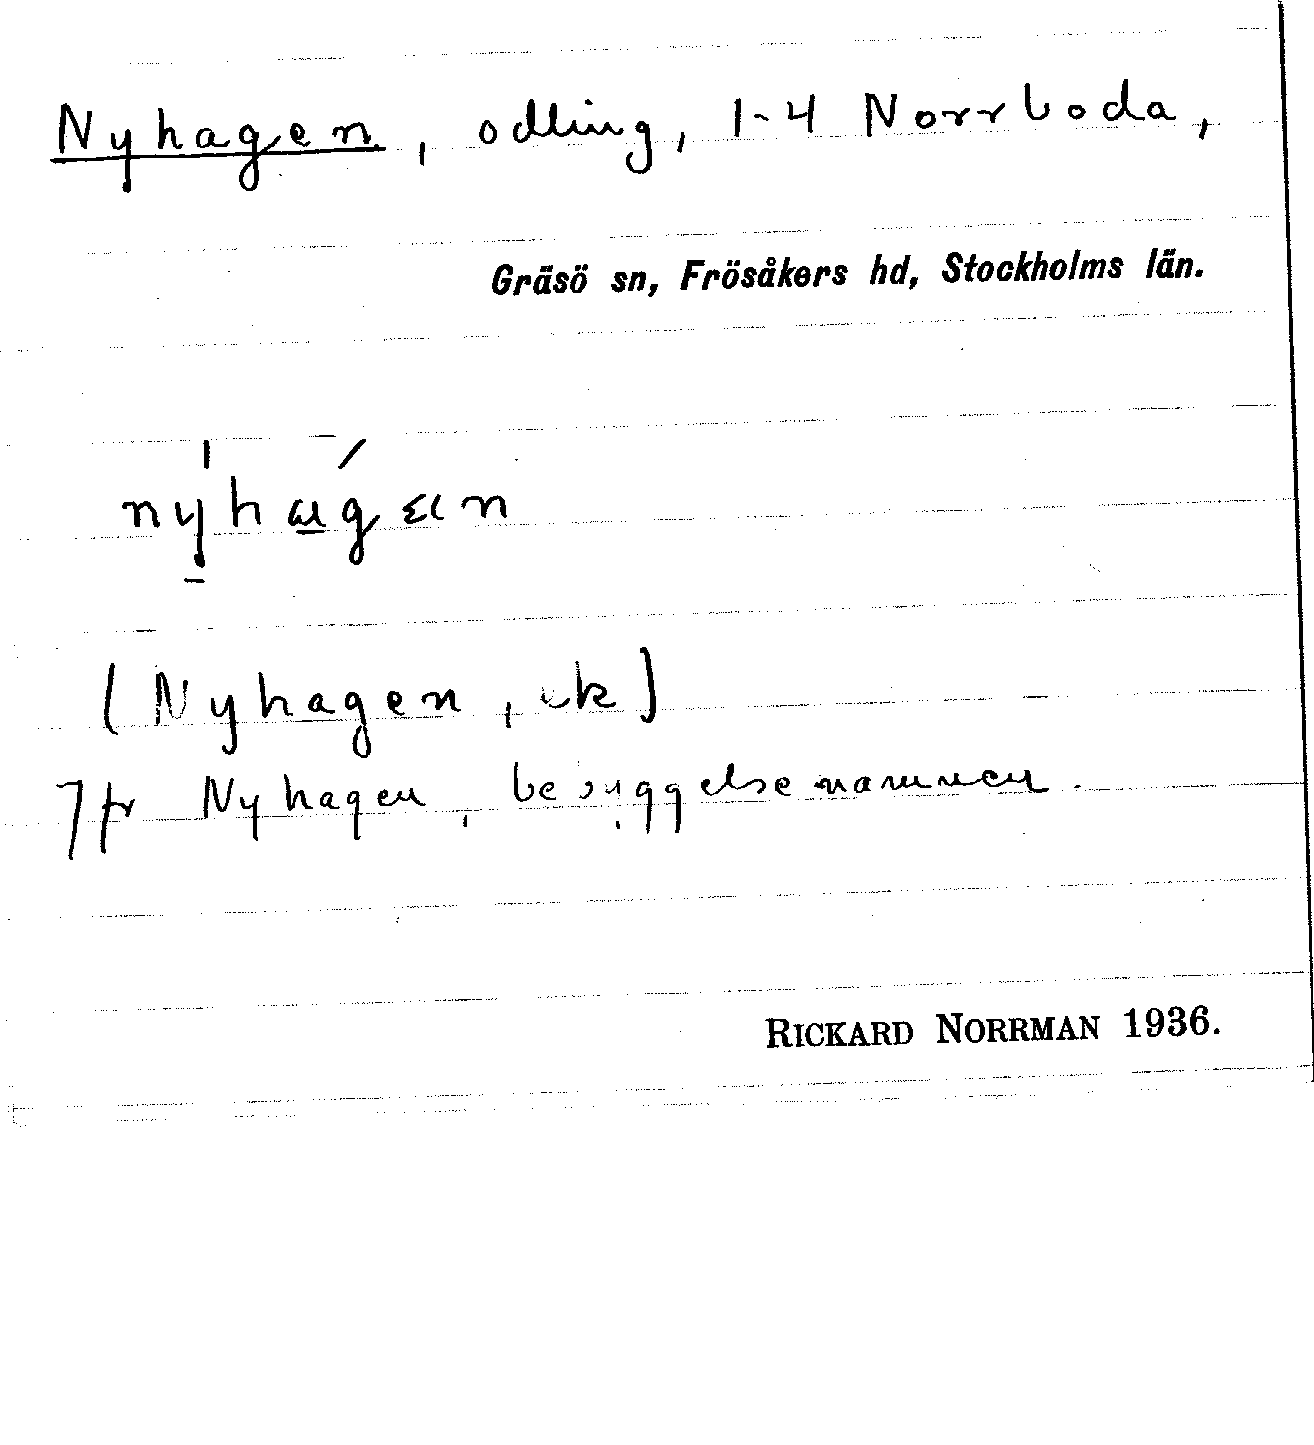 Nyhagen, odling, 1-4 Norrboda,
Gräsö sn, Frösåkers hd, Stockholms län.
(Nyhagen, ek)
Jfr Nyhagen, bebyggelsenamnen.
RICKARD NORRMAN 1936.